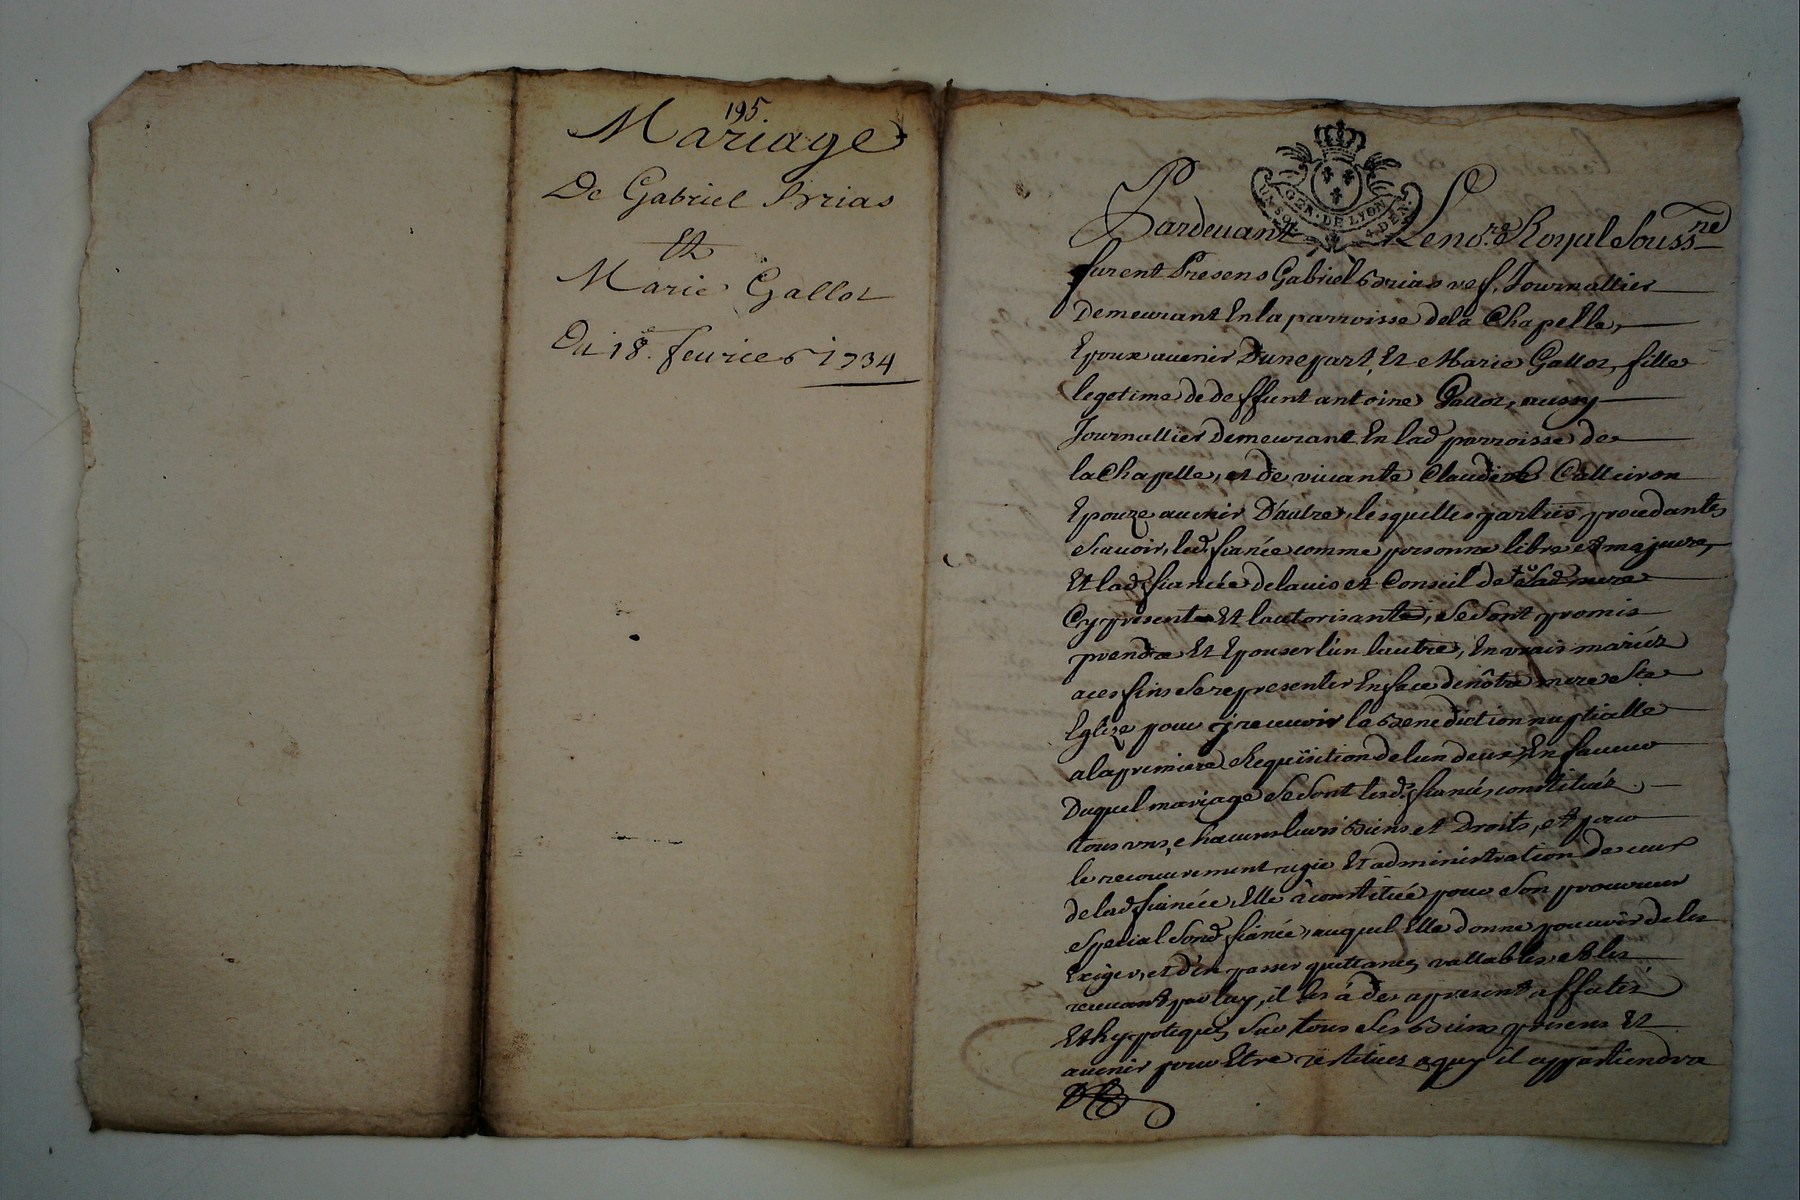 195
Mariage
De Gabriel Brias
Et
Marie Gallot
Du 18e. feurier 1734
GEN. DE LYON
UN SOL 4 DEN.
Pardeuant Le no.re Royal souss.né
furent Presens Gabriel Brias vef. Journallier
demeurant En la parroisse de la Chapelle,
Epoux auenir Dune part, Et Marie Gallot, fille
legetime de deffunt antoine Gallot, aussy
Journallier demeurant En lad. parroisse de
la Chapelle, et de viuante Claudine
Epouze auenir D'autre, lesquelles parties procedantes
Scauoir, led. fiancée comme personne libre et majeure,
Et lad. fiancée de lauis et Conseil de lad. mere
Cy presente Et lautorisante, Se sont promis
prendre Et Epouser l'un lautre, En vrais mariés
a ces fins Se representer En face de nôtre mere Ste
Eglize pour y receuoir la Benediction nuptialle
a la premiere Requisition de lun deux, En faueur
Duquel mariage Se Sont lesd. fiancés constitués
tous uns, chacuns leurs Biens et Droits, et pour
le recouurement regie Et administration de ceux
de lad. fiancée, Elle à constitué pour Son procureur
Special Sond. fiancé, auquel Elle donne pouuoir de les
Exiger, et d'en passer quittances vallables, et les
receuant par luy, il les à des apresent affectés
Et hypoteques Sur tous Ses Biens presens Et
auenir pour Etre restitues a quy il appartiendra